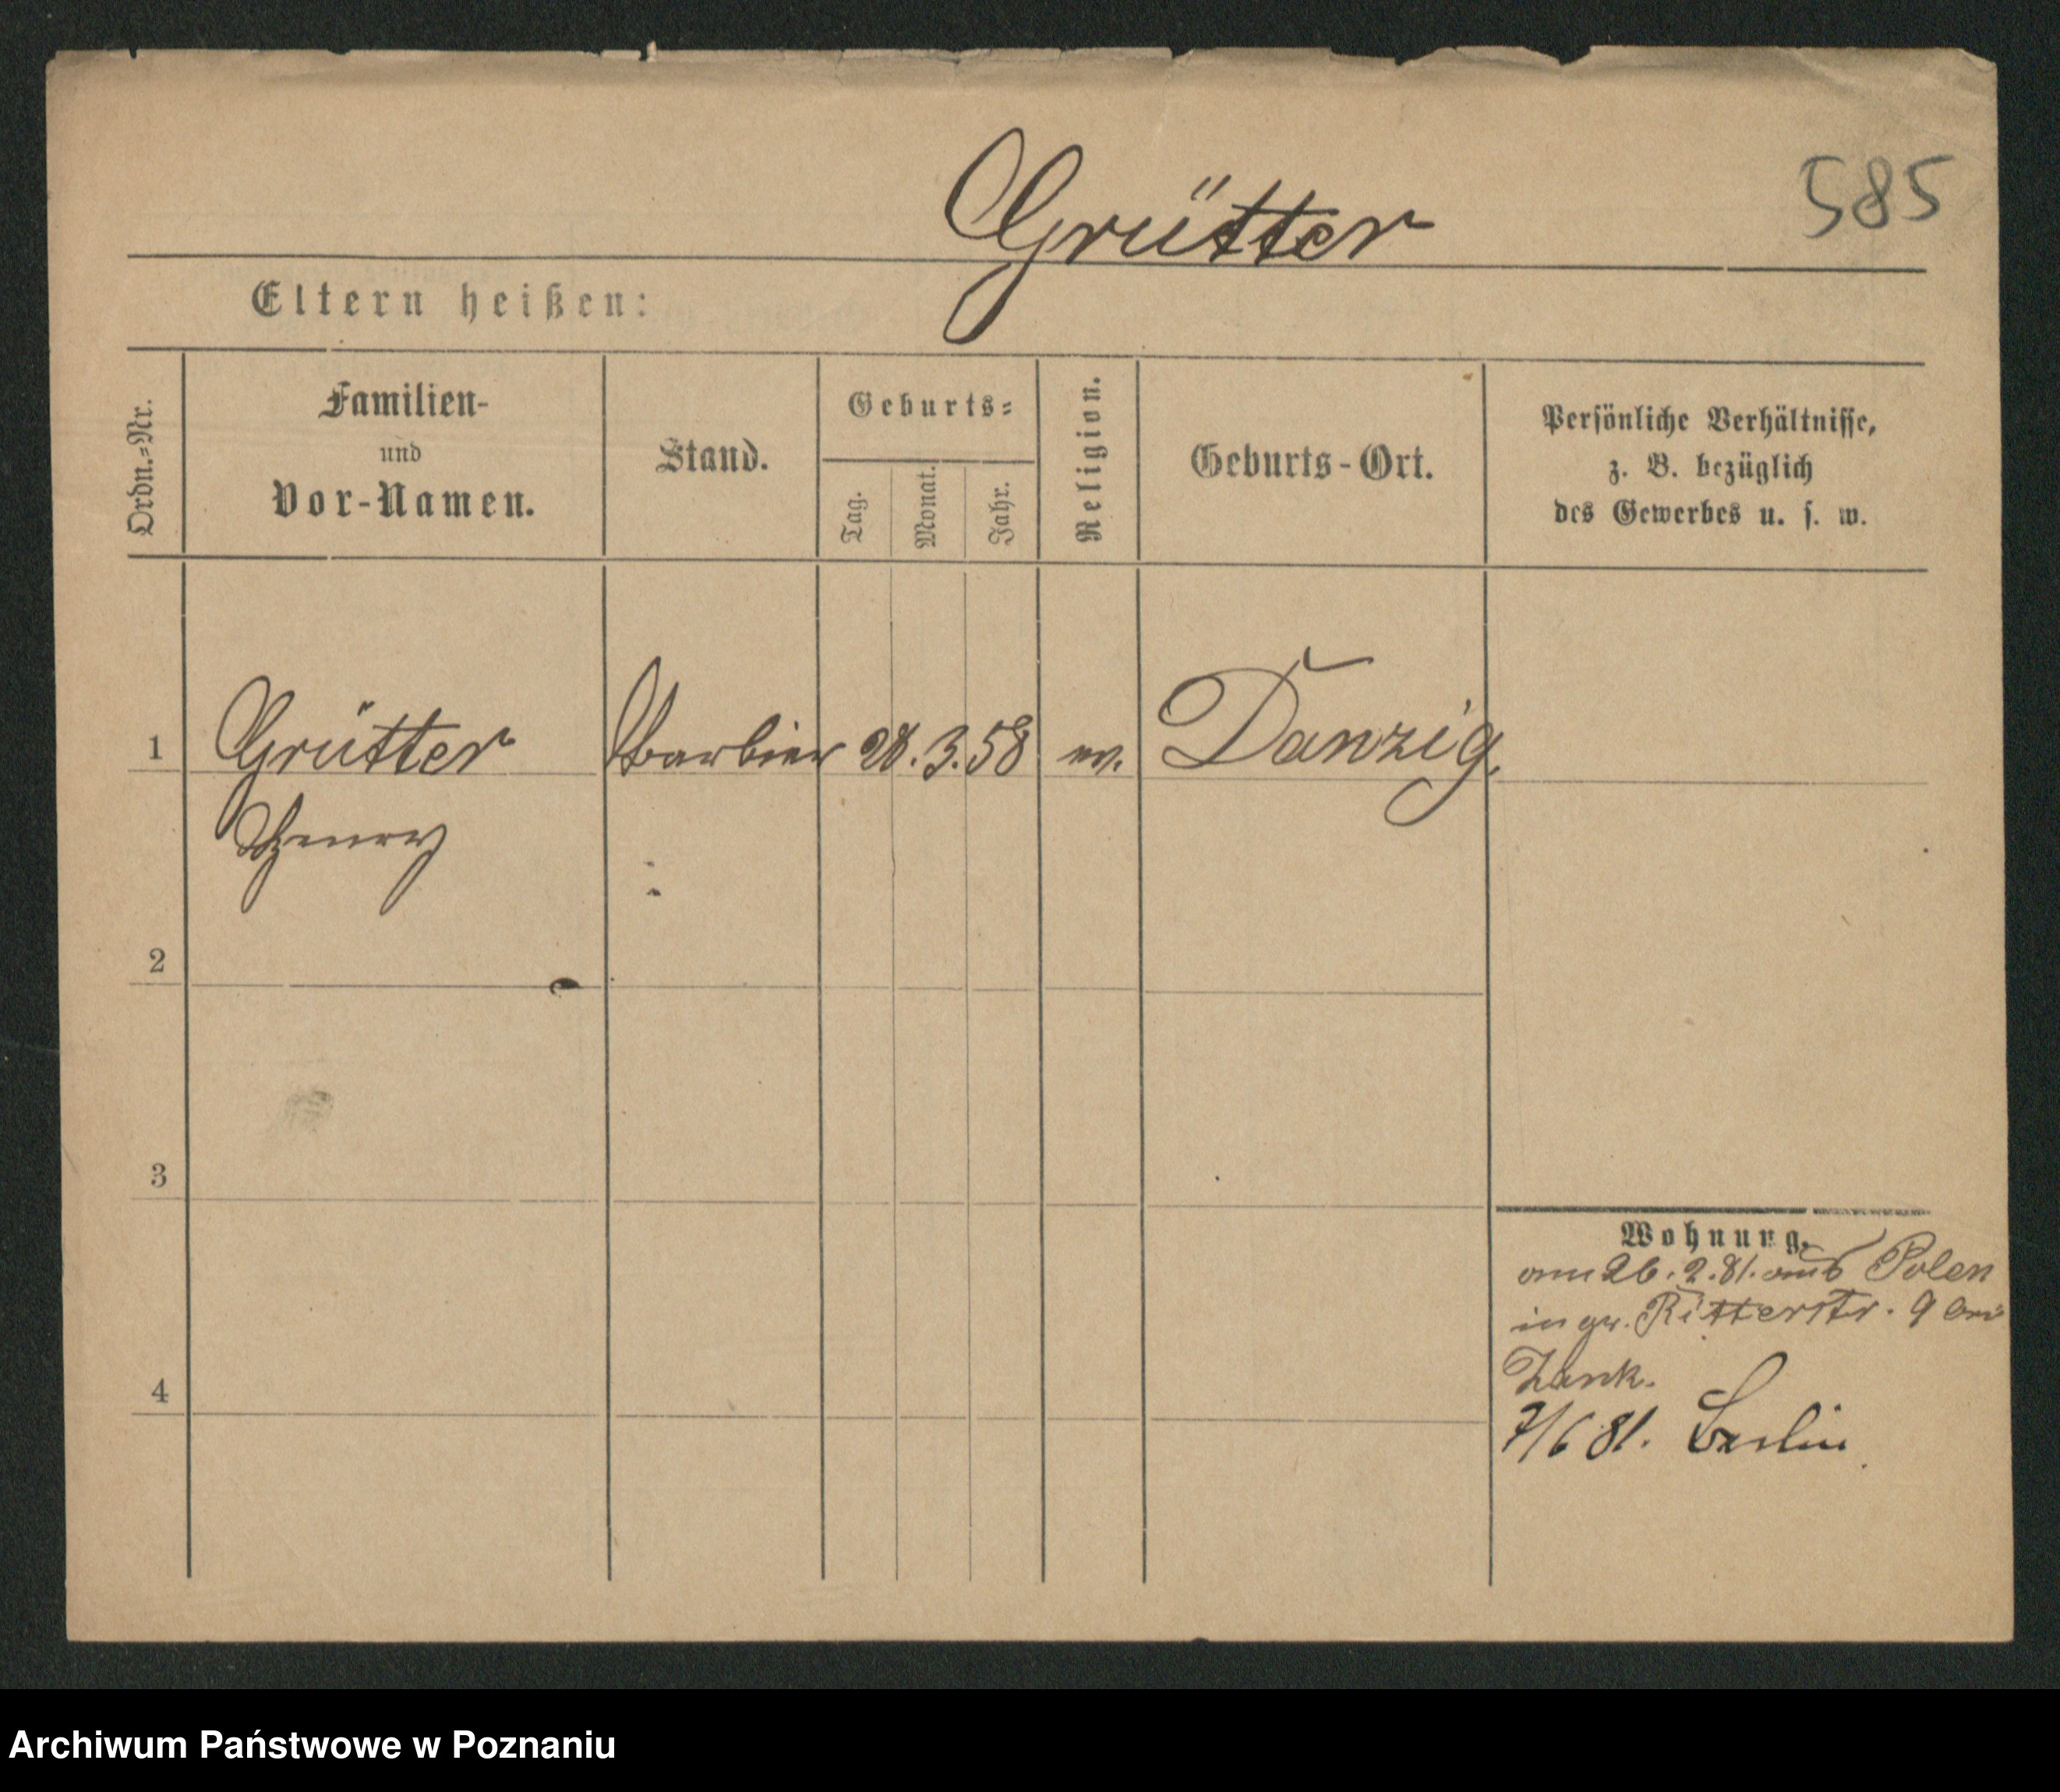 Grütter
585
Eltern heißen:
Ordn.-Nr.
Familien-
und
Vor-Namen.
Stand.
Geburts-
Tag.
Monat.
Jahr.
Religion.
Geburts-Ort.
Persönliche Verhältnisse,
z. B. bezüglich
des Gewerbes u. s. w.
1 Grütter Barbier 28. 3. 58 ev. Danzig.
Henry
2
3
4
Wohnung.
26. 2. 81. aus Polen
in gr. Ritterstr. 9 bei
Zank.
7/6 81. Berlin
Archiwum Państwowe w Poznaniu